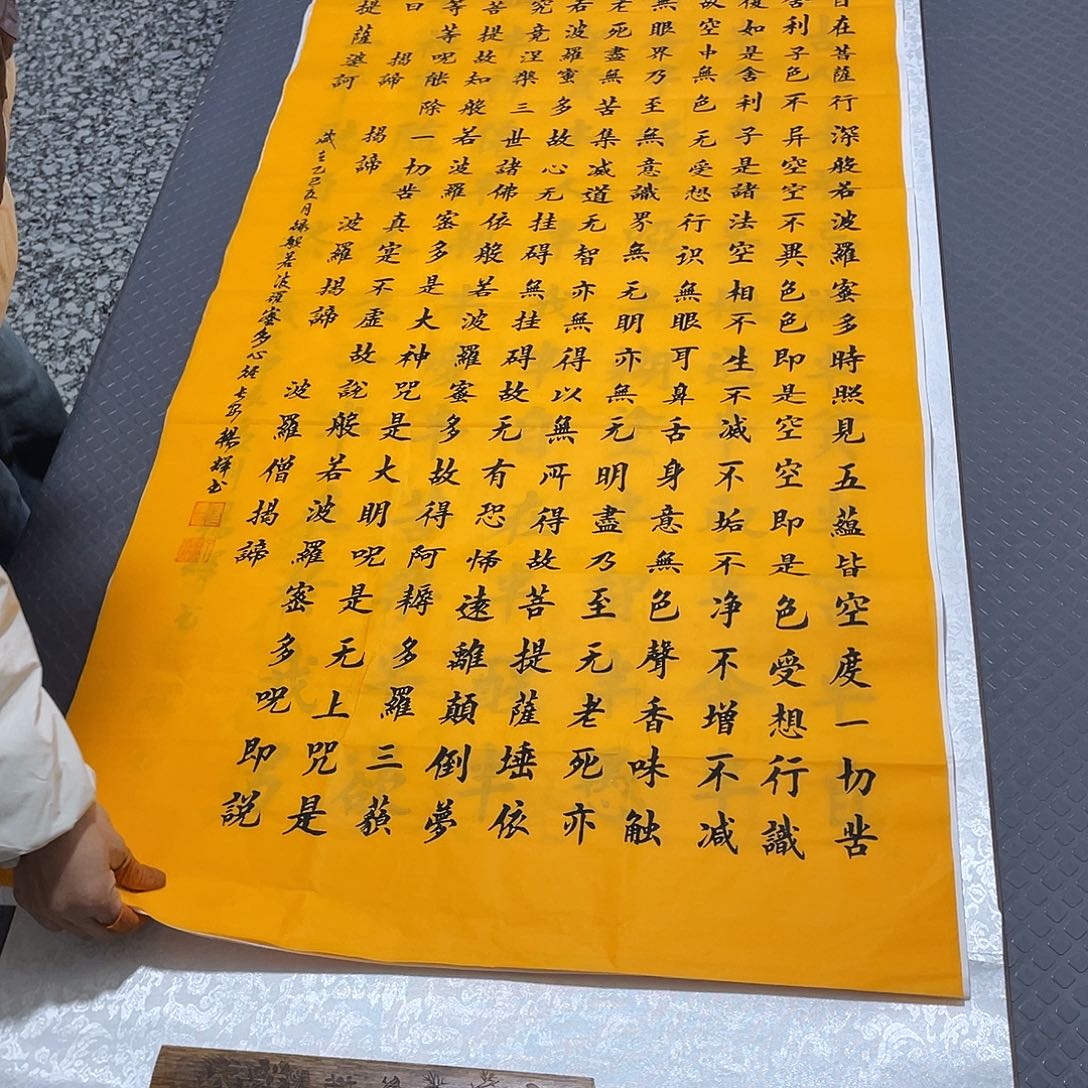 自在菩薩行深般若波羅蜜多時照見五蘊皆空度一切苦
舍利子色不异空空不異色色即是空空即是色受想行識
復如是舍利子是諸法空相不生不滅不垢不净不增不减
故空中無色无受想行识無眼耳鼻舌身意無色聲香味触
無眼界乃至無意識界無无明亦無无明盡乃至无老死亦
老死盡無苦集滅道无智亦無得以無所得故菩提薩埵依
若波羅蜜多故心无挂碍無挂碍故无有恐怖遠離顛倒夢
究竟涅槃三世諸佛依般若波羅蜜多故得阿耨多羅三藐
菩提故知般若波羅蜜多是大神咒是大明呪是无上咒是
等等呪能除一切苦真实不虛故說般若波羅密多呪即説
曰 揭諦 揭諦 波羅揭諦 波羅僧揭諦
提薩婆訶
乙巳月錄般若波羅蜜多心經楊輝书